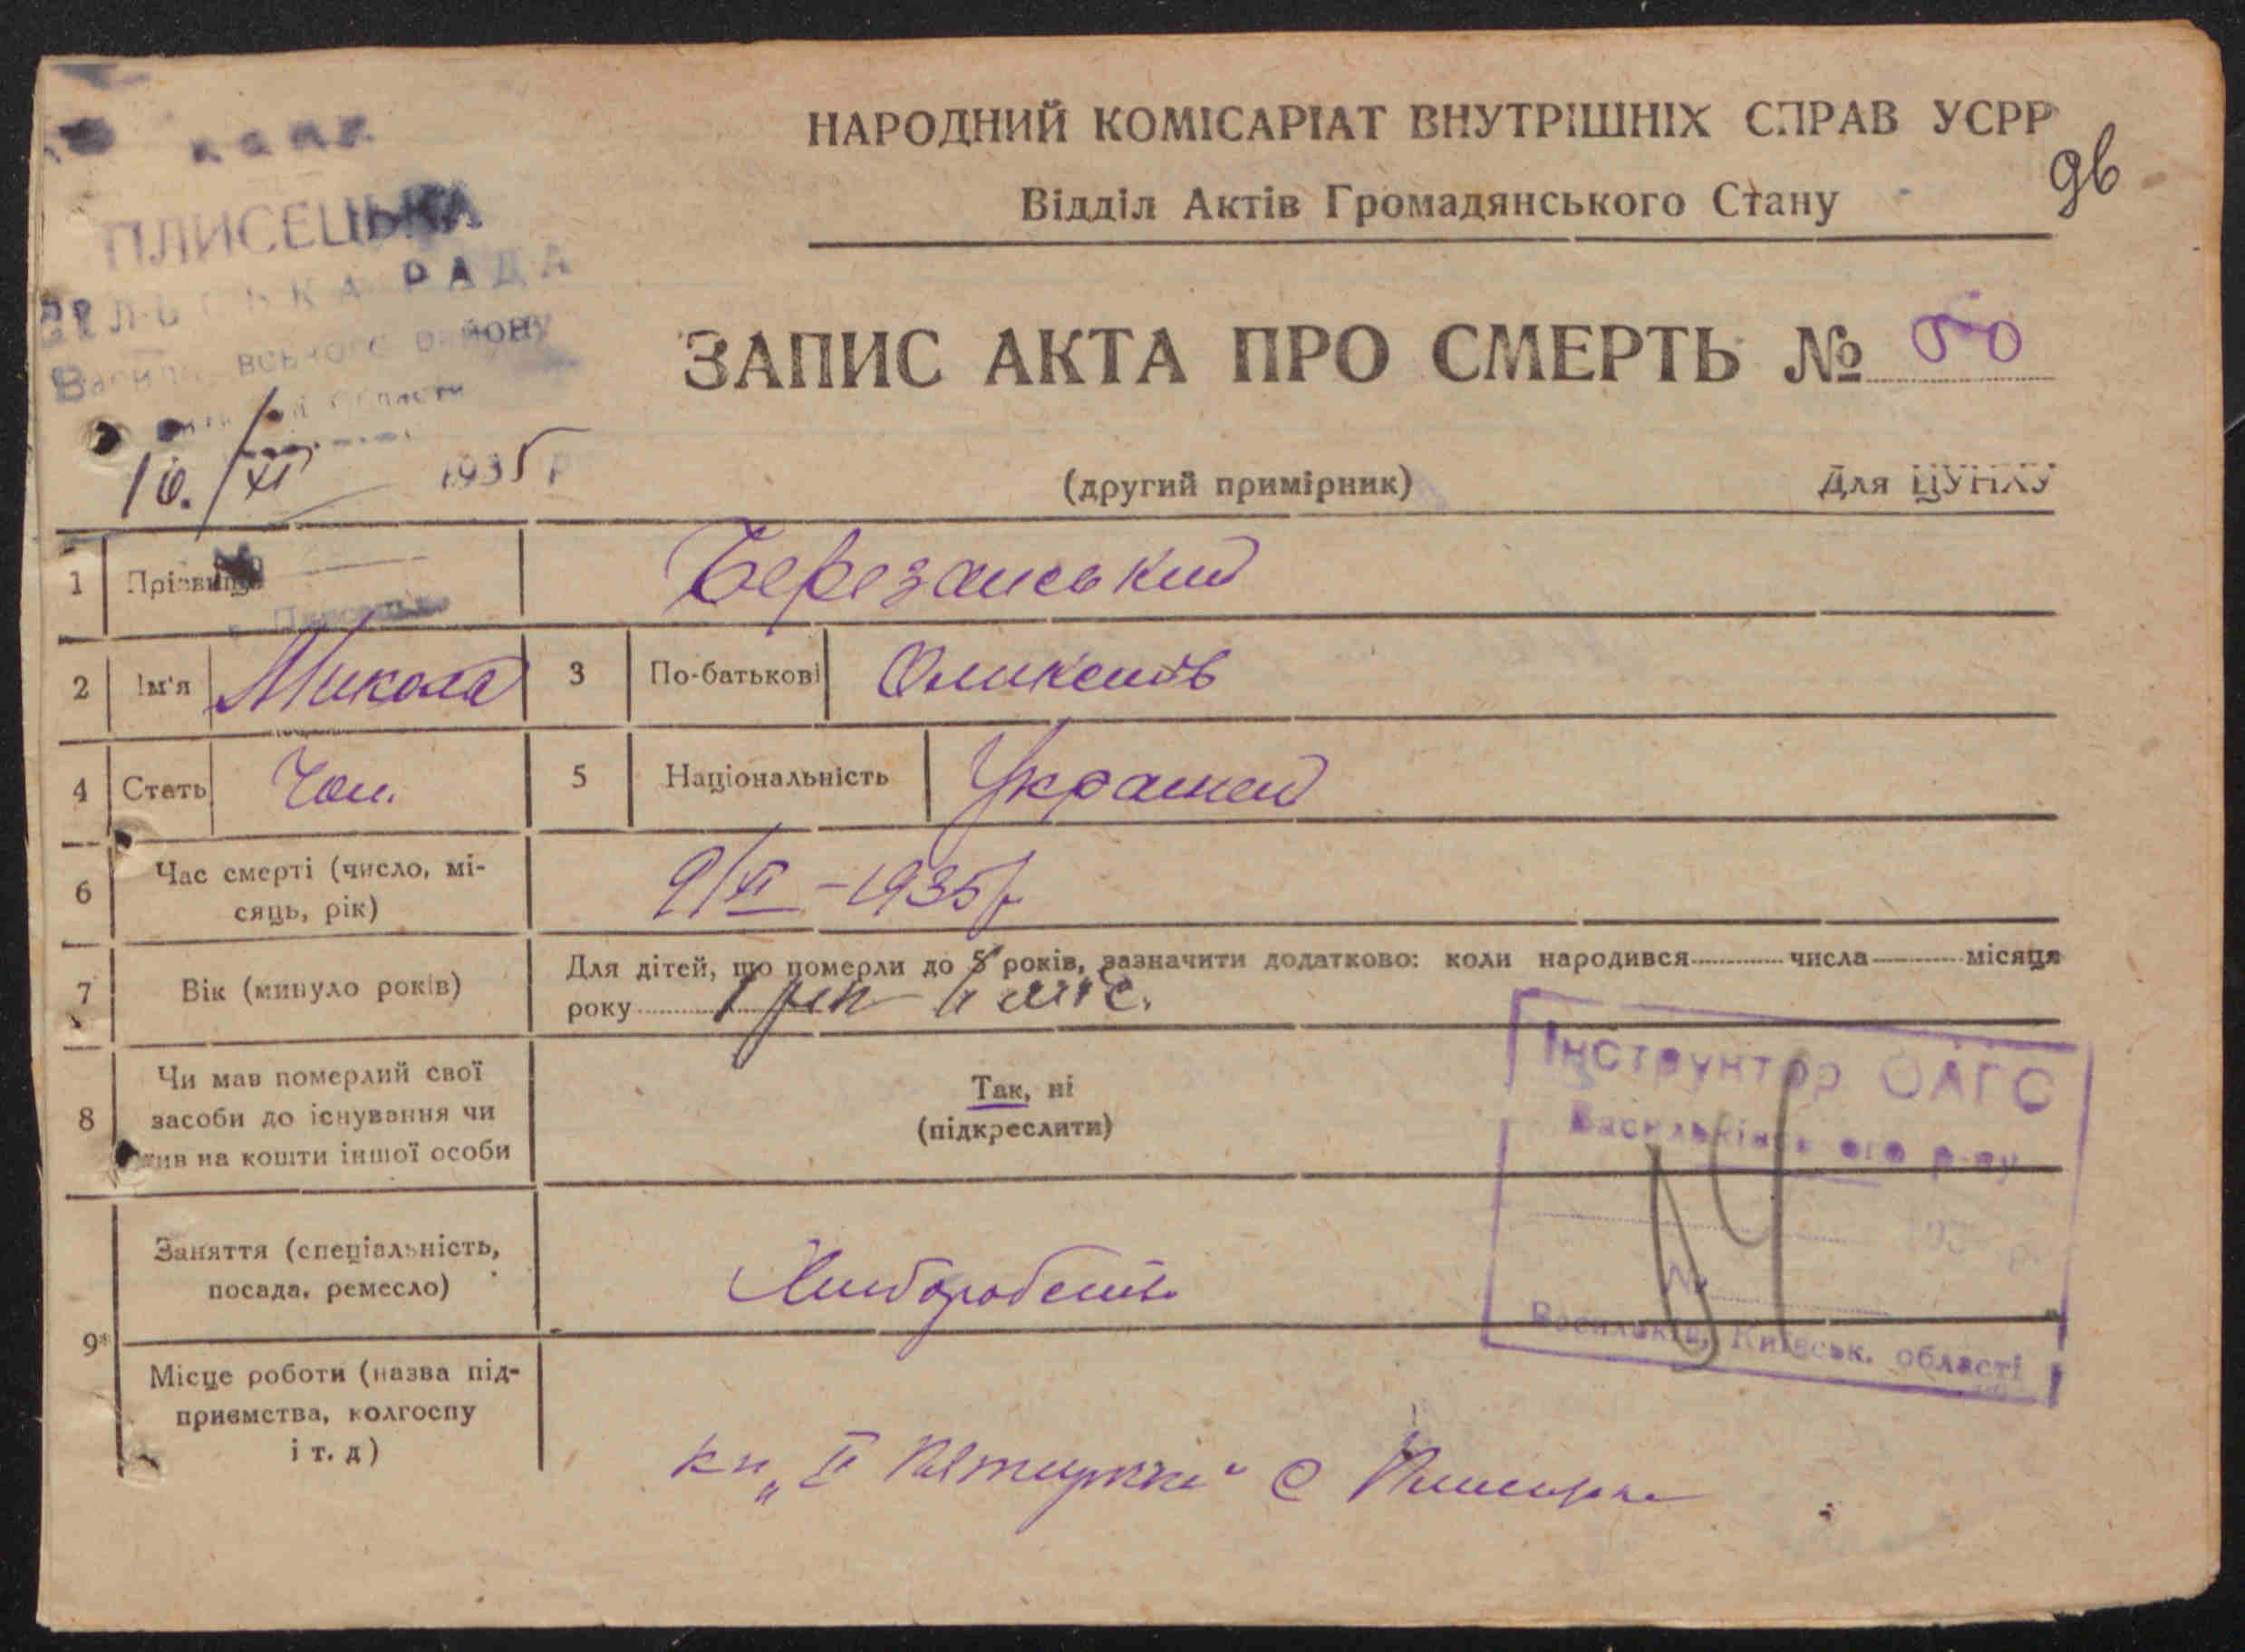 НАРОДНИЙ КОМІСАРІАТ ВНУТРІШНІХ СПРАВ УСРР
Відділ Актів Громадянського Стану
ПЛИСЕЦЬКА
СІЛЬСЬКА РАДА
ЗАПИС АКТА ПРО СМЕРТЬ № 50
16./XI 1935 р
(другий примірник) Для ЦУНХУ
1 Прізвище Березанський
2 Ім'я Микола 3 По-батькові
4 Стать Чол. 5 Національність Українец
6 Час смерті (число, мі-
сяць, рік) 9/XI – 1935 р
7 Вік (минуло років) Для дітей, що померли до 5 років, зазначити додатково: коли народився числа місяця
року 1 рік міс.
8 Чи мав померлий свої
засоби до існування чи
жив на кошти іншої особи
Так, ні
(підкреслити)
Інструктор ОАГС
Васильківського р-ну
193 р.
№
Васильків, Київськ. області
9* Заняття (спеціальність,
посада, ремесло) Хліборобств
Місце роботи (назва під-
приємства, колгоспу
і т. д) "II Пятирічка" с